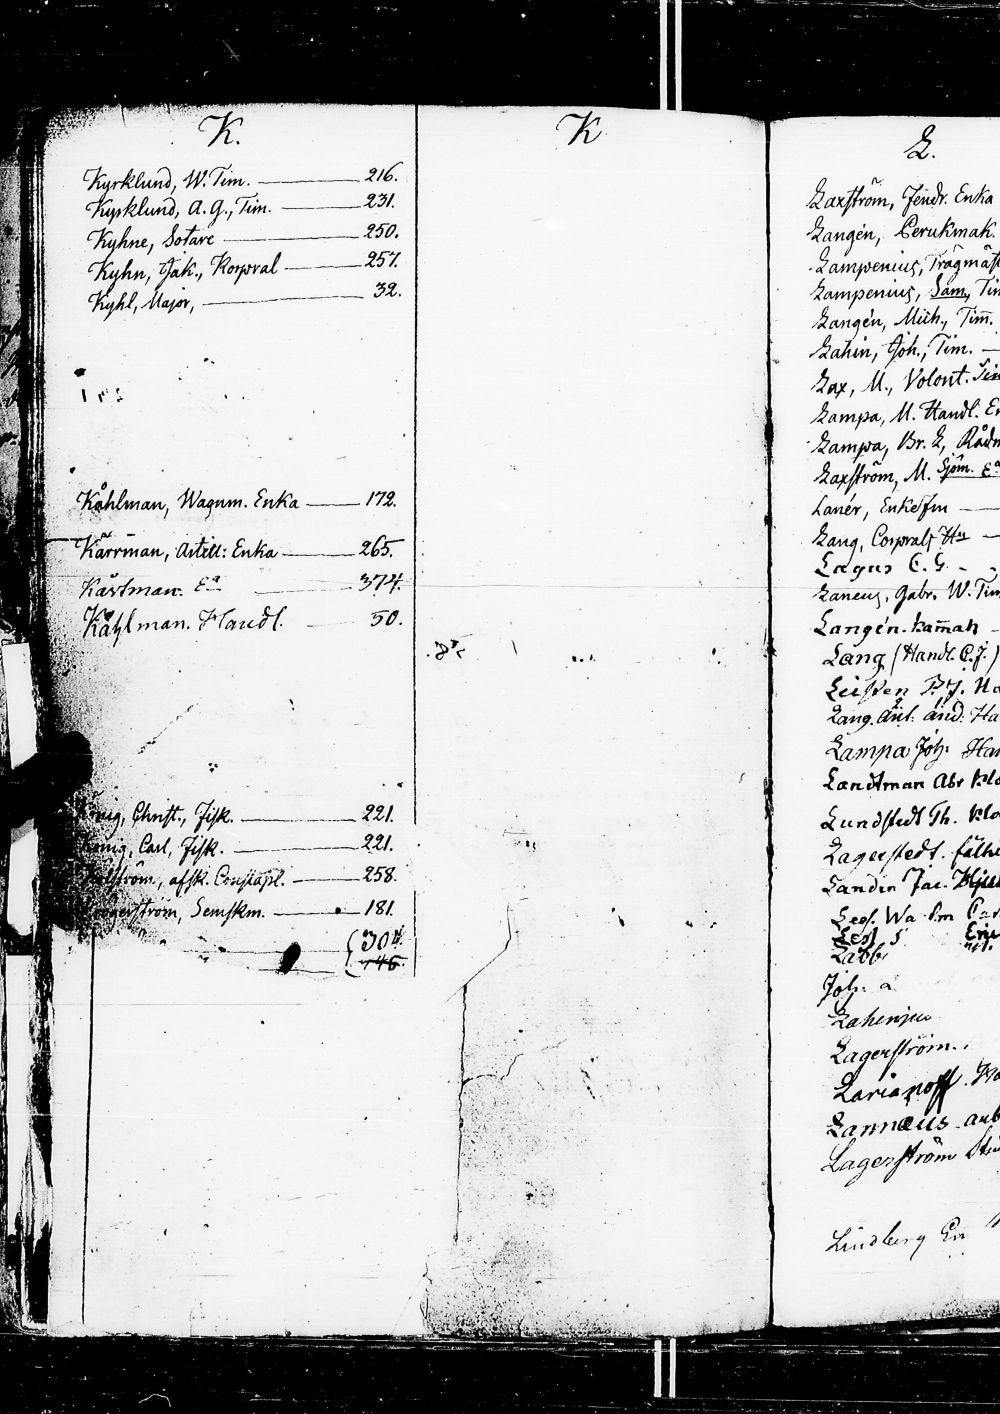 K.
Kyrklund, W. Tim. 216.
Kyrklund, A. G., Tim. 231.
Kyhne, Sotare 250.
Kyhn, Jak., Korporal 257.
Kyhl, Major, 32.
Kåhlman, Wagnm. Enka 172.
Kärrman, Artill: Enka 265.
Kårtman. Eª 374.
Kåhlman. Handl. 50.
König, Christ., Fisk. 221.
König, Carl, Fisk. 221.
afsk. Constapl. 258.
Semskm. 181.
304.
146.
K
L.
Laxström, Fendr. Enka
Langén, Perukmak.
Lampenius, Trägmäst
Lampenius, Sam, Tim
Langén, Mich., Tim.
Lahin, Joh., Tim.
Lax, M., Volont.
Lampa, M. Handl. En
Lampa, Br. L, Rådm
Laxström, M. Sjöm. Eª
Lanér, Enkefru
Lang, Corporals Hu
Lagus C. G.
Laneus, Gabr. W. Tim
Langén. Hannah
Lang (Handl. C. J.)
Leisten P. J. Ha
Lang.
Lampa Joh. Han
Landtman Abr Klo
Lundstedt Th. Klo
Lagerstedt. fälhe
Landin Jac.
Labb
Joh. a
Lagerström.
Larianoff. Ha
Lannæus arb
Lagerström
Lindberg En